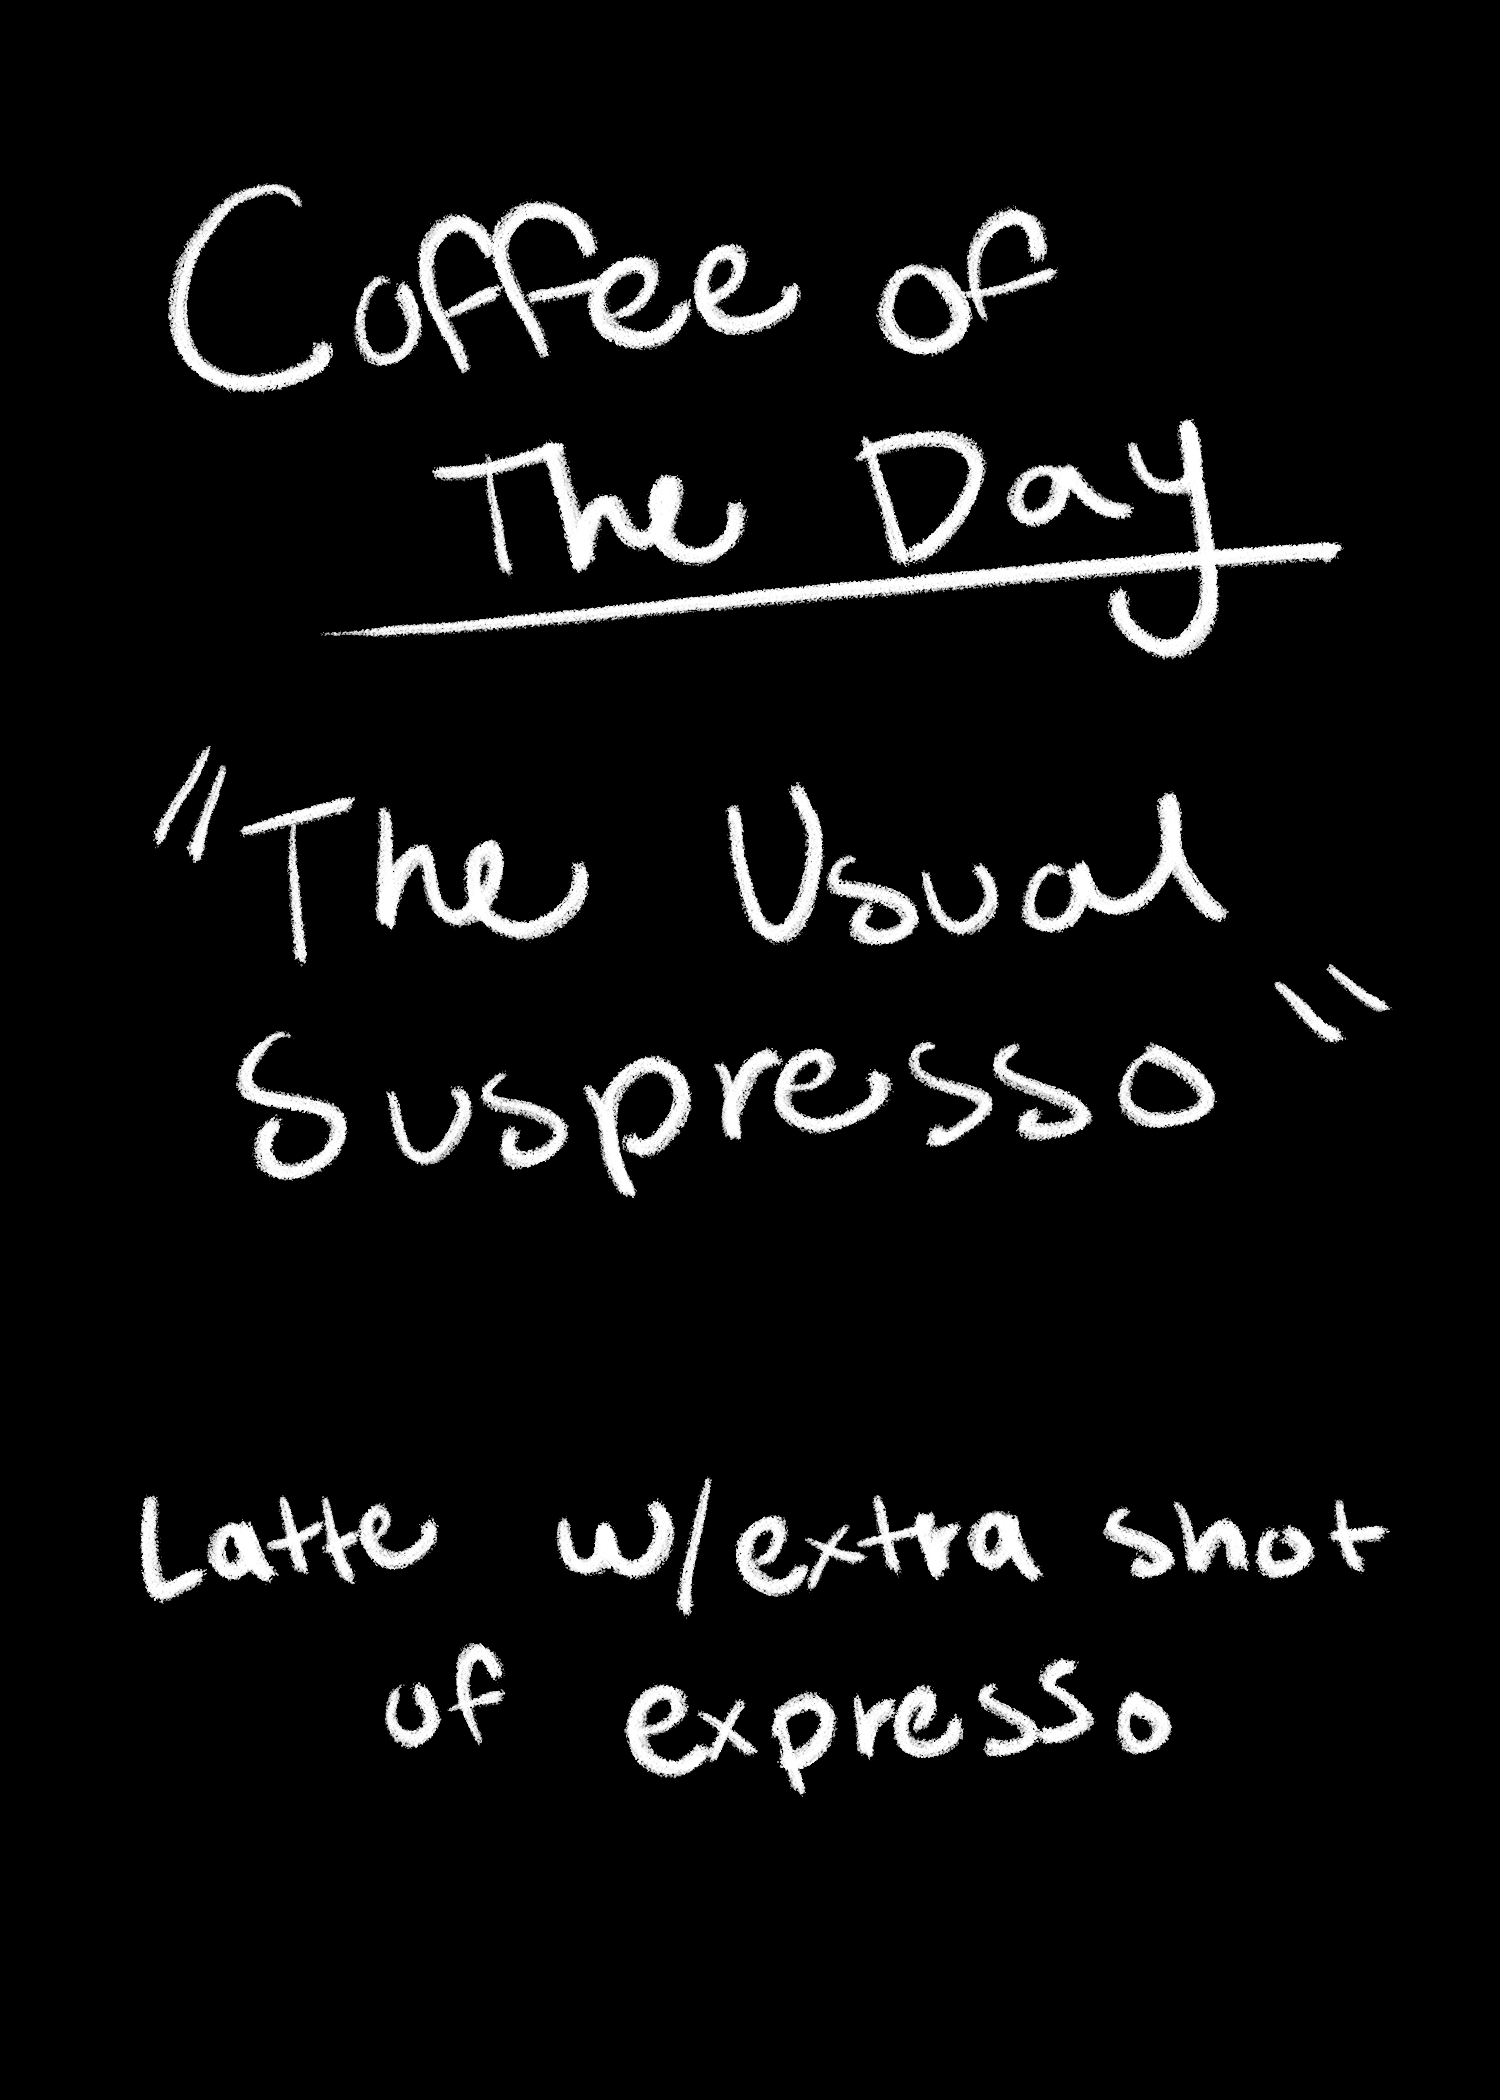 Coffee of
The Day
"The Usual
Suspresso"
Latte w/extra shot
of expresso